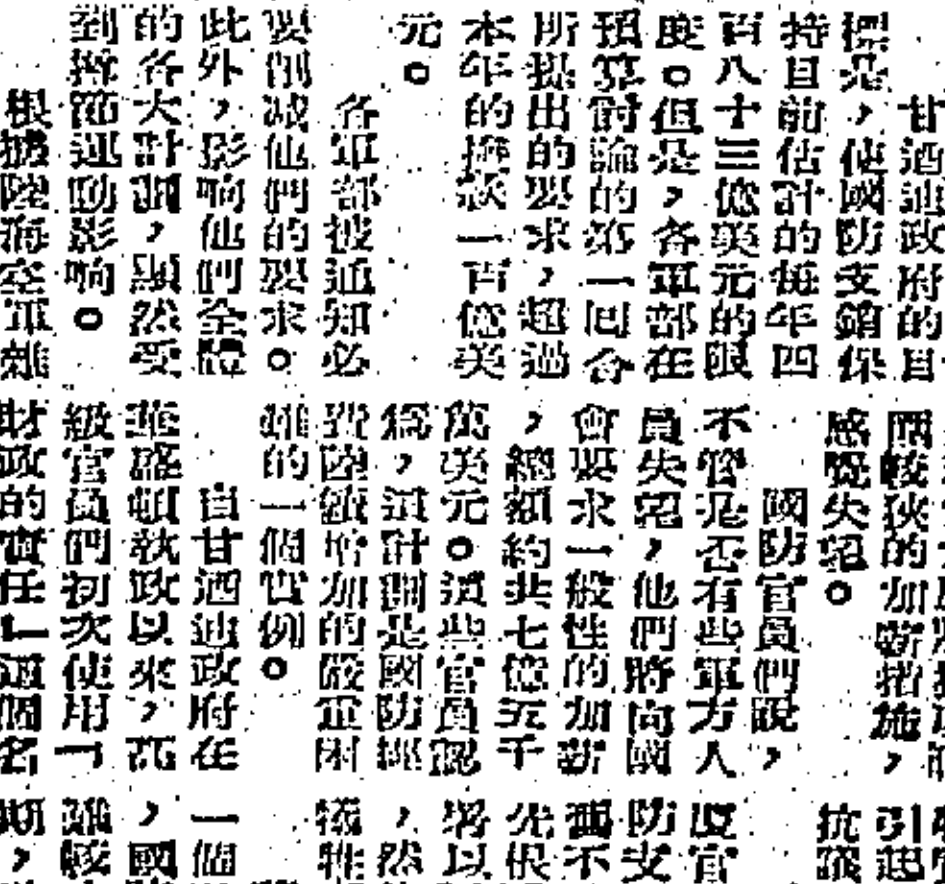 甘迺迪政府的目
標是，使國防支銷保
持目前估計的每年四
百八十三億美元的限
度。但是，各軍部在
預算討論的第一回合
所提出的要求，超過
本年的撥款一百億美
元。
各軍部被通知必
要削減他們的要求。
此外，影响他們全體
的各大計劃，顯然受
到撙節運動影响。
根據陸海空軍雜
較狹的加薪措施，
感覺失望。
國防官員們說，
不管是否有些軍方人
員失望，他們將向國
會要求一般性的加薪
，總額約共七億五千
萬美元。這些官員認
爲，這計劃是國防經
費陸續增加的嚴重困
難的一個實例。
自甘迺迪政府在
華盛頓執政以來，高
級官員們初次使用一
財政的責任」這個名
引起
抗議
度官
防支
不
先根
將以
，然
犧牲
一個
，國
難較
期，